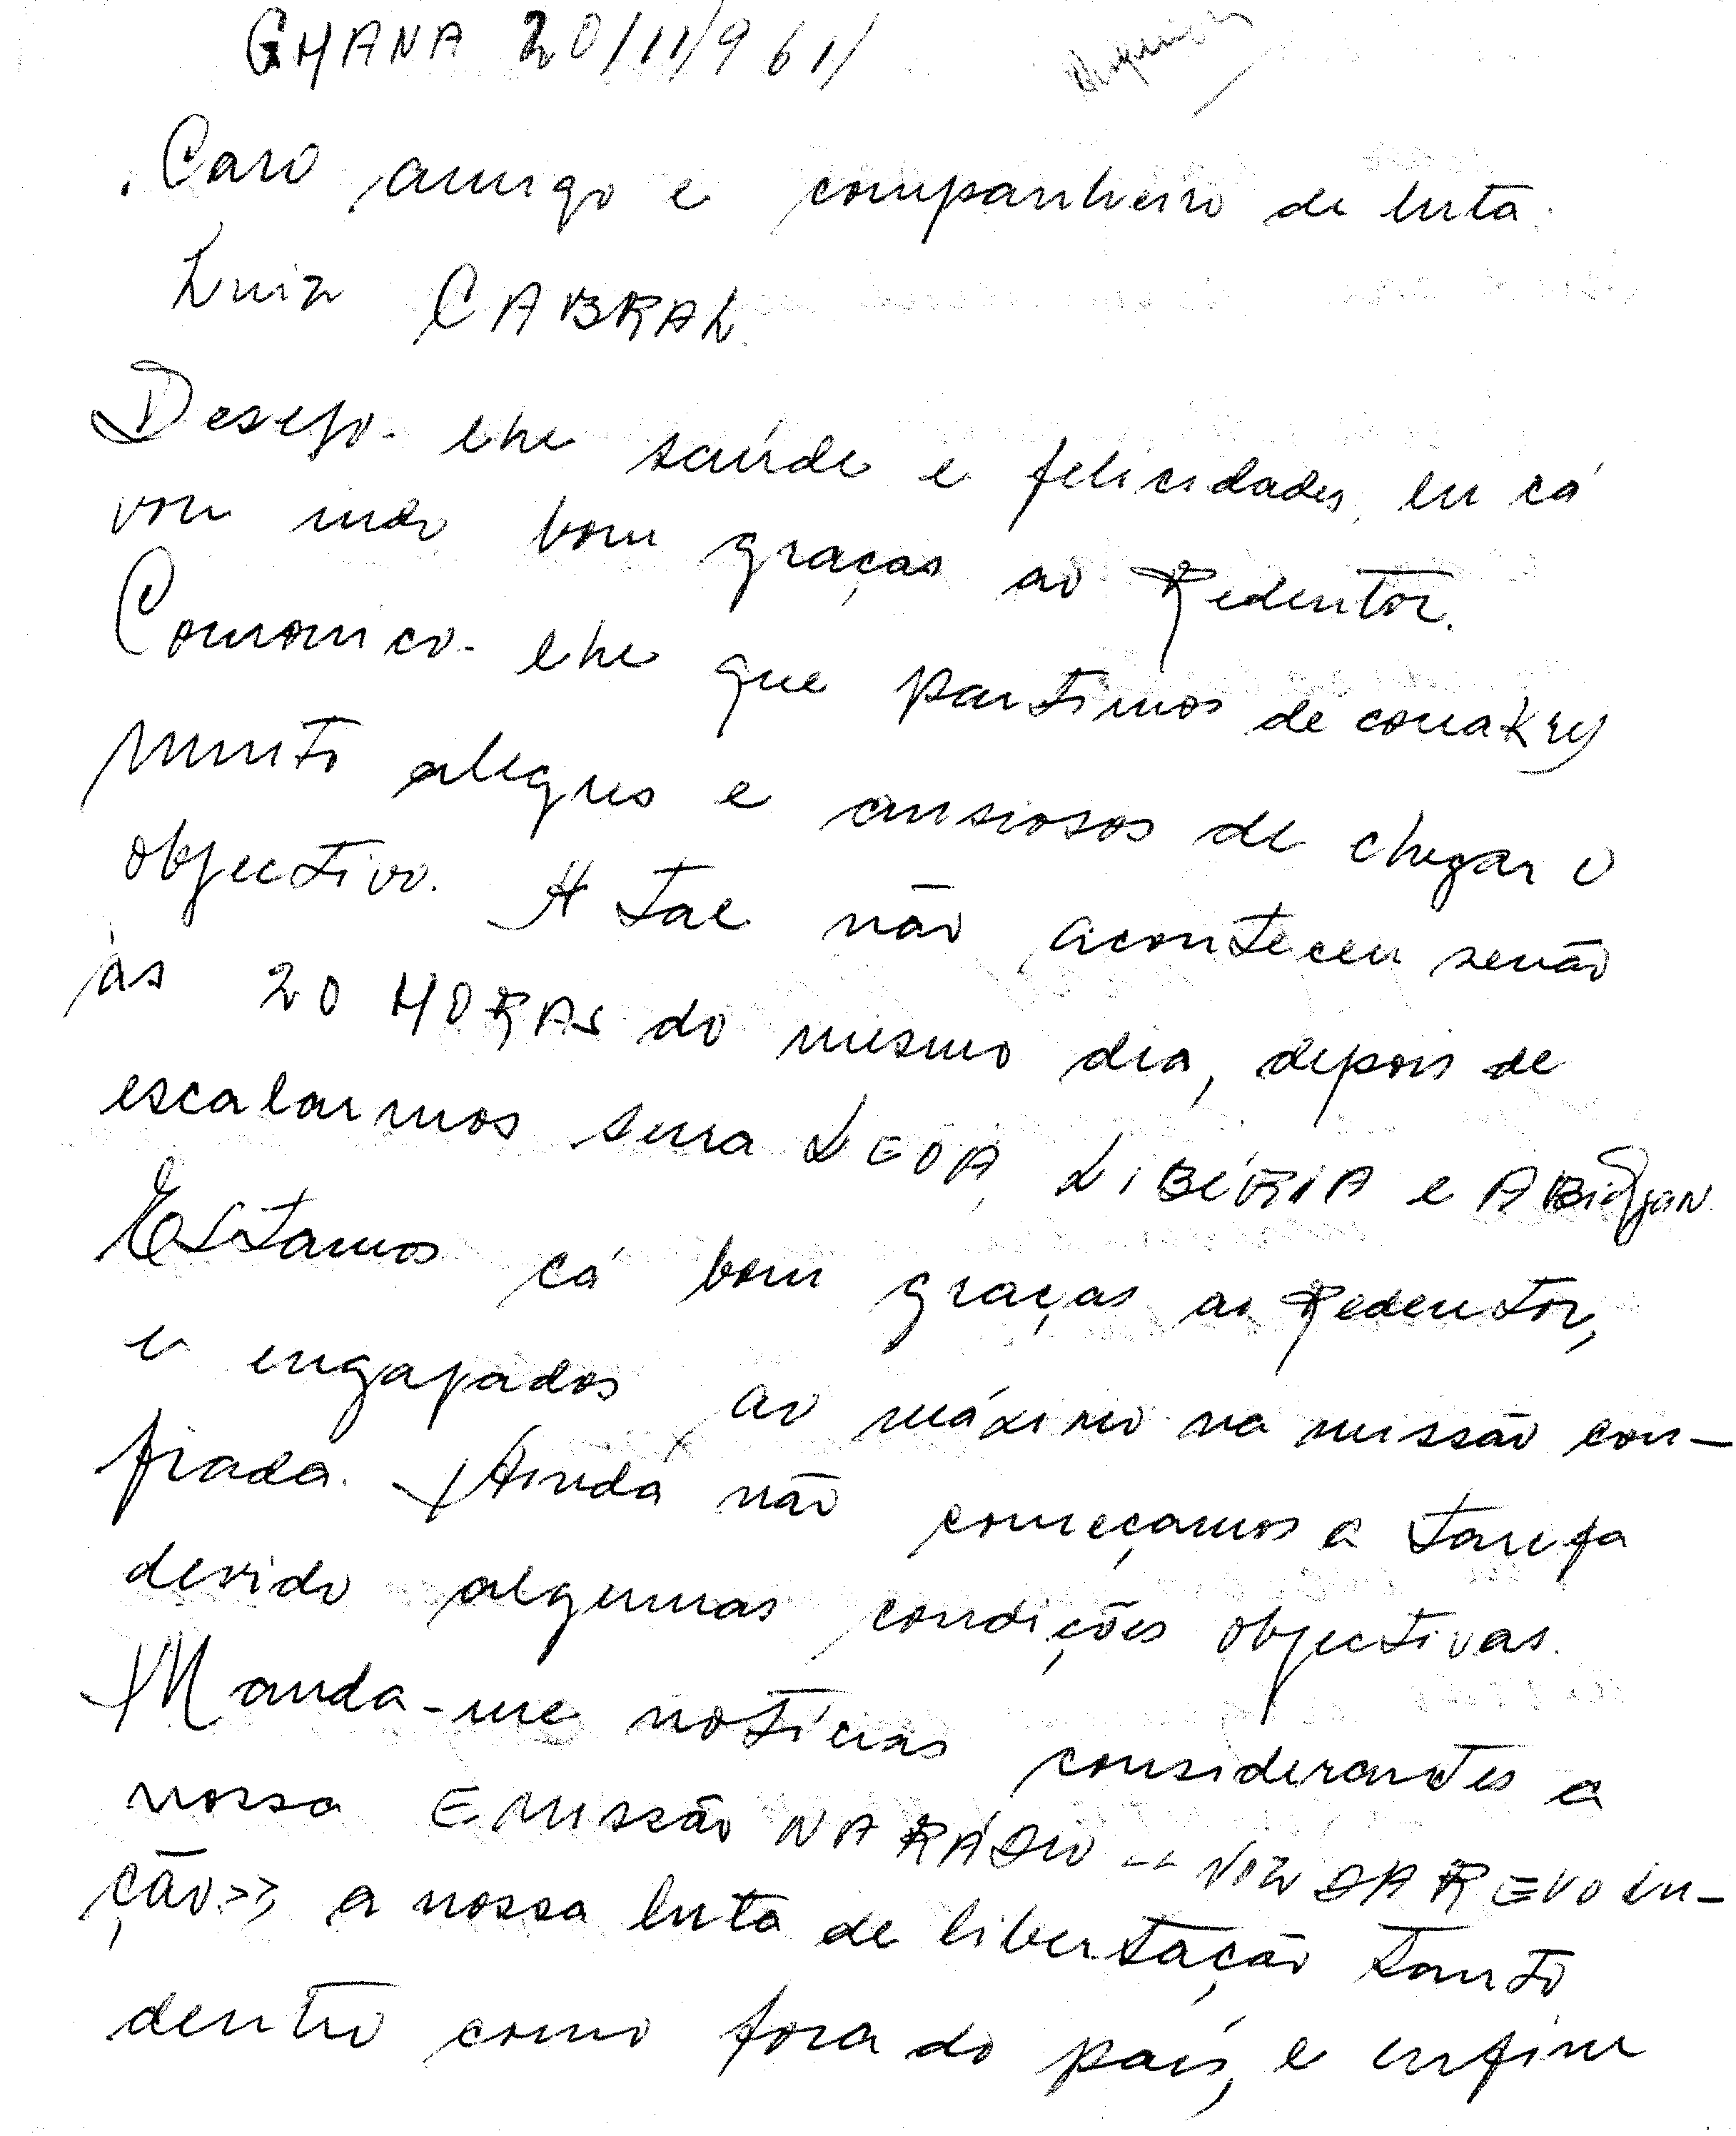 GHANA 20/11/961/
Caro amigo e companheiro de luta.
Luiz CABRAL.
Desejo-lhe saúde e felicidades, eu cá
vou indo bom graças ao Redentor.
Comonico-lhe que partimos de conakry
muito alegres e ansiosos de chegar o
objectivo. A tal não aconteceu senão
às 20 HORAS do mesmo dia, depois de
escalarmos serra LEOA, LIBÉRIA e ABidjan.
Estamos cá bom graças ao Redentor,
e engajados ao máximo na missão con-
fiada. Ainda não começamos a tarefa
devido algumas condições objectivas.
Manda-me notícias considerantes a
nossa EMissão NA RÁDIO "VOZ DA REVOLU-
ção>>, a nossa luta de libertação tanto
dentro como fora do país, e enfim